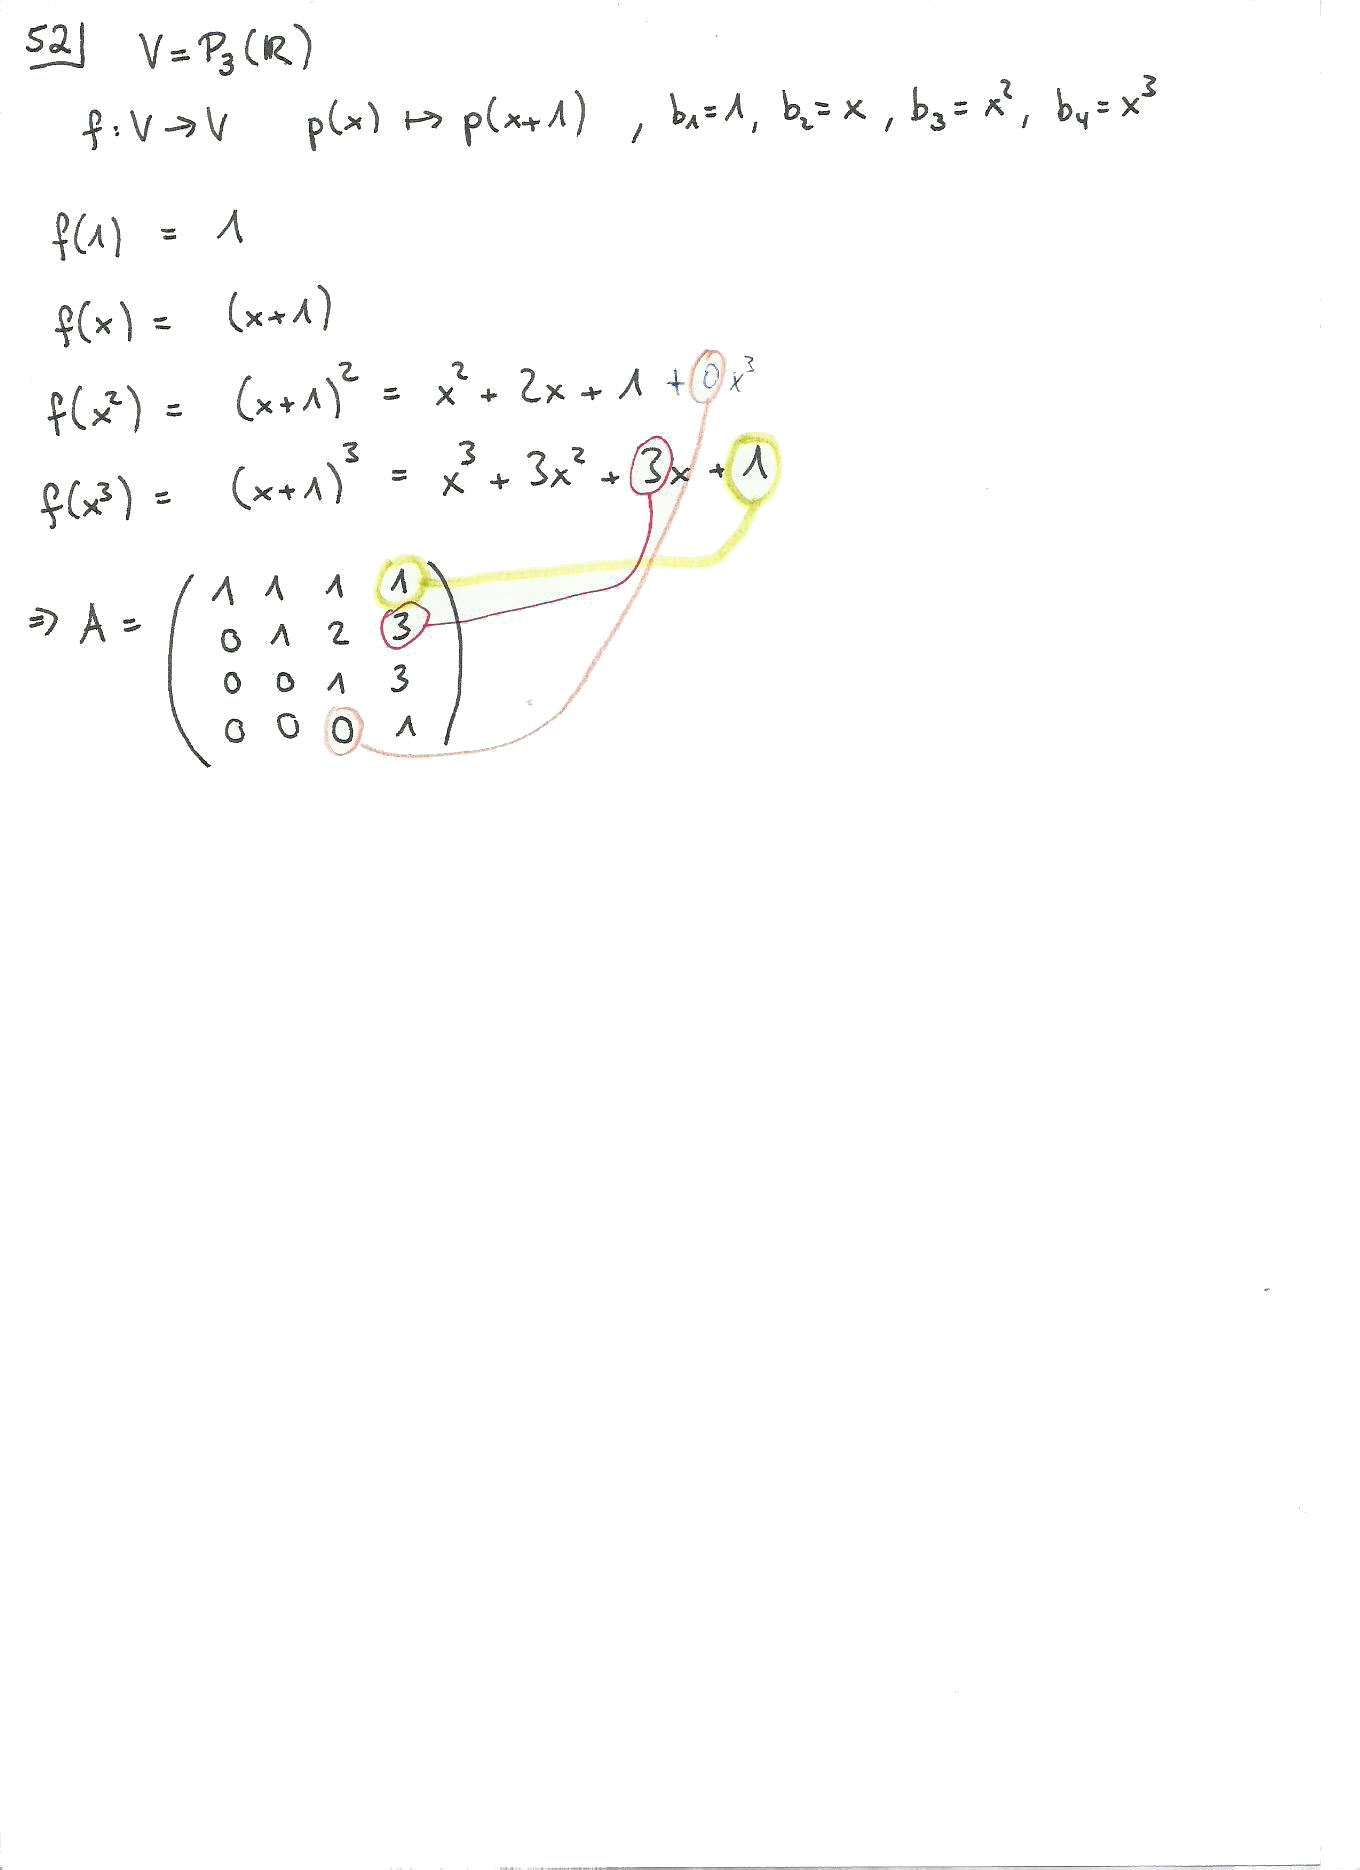 52] V = P₃(ℝ)
f: V → V p(x) ↦ p(x+1) , b₁=1, b₂=x, b₃=x², b₄=x³
f(1) = 1
f(x) = (x+1)
f(x²) = (x+1)² = x² + 2x + 1 + 0x³
f(x³) = (x+1)³ = x³ + 3x² + 3x + 1
⇒ A = ( 1 1 1 1
0 1 2 3
0 0 1 3
0 0 0 1 )